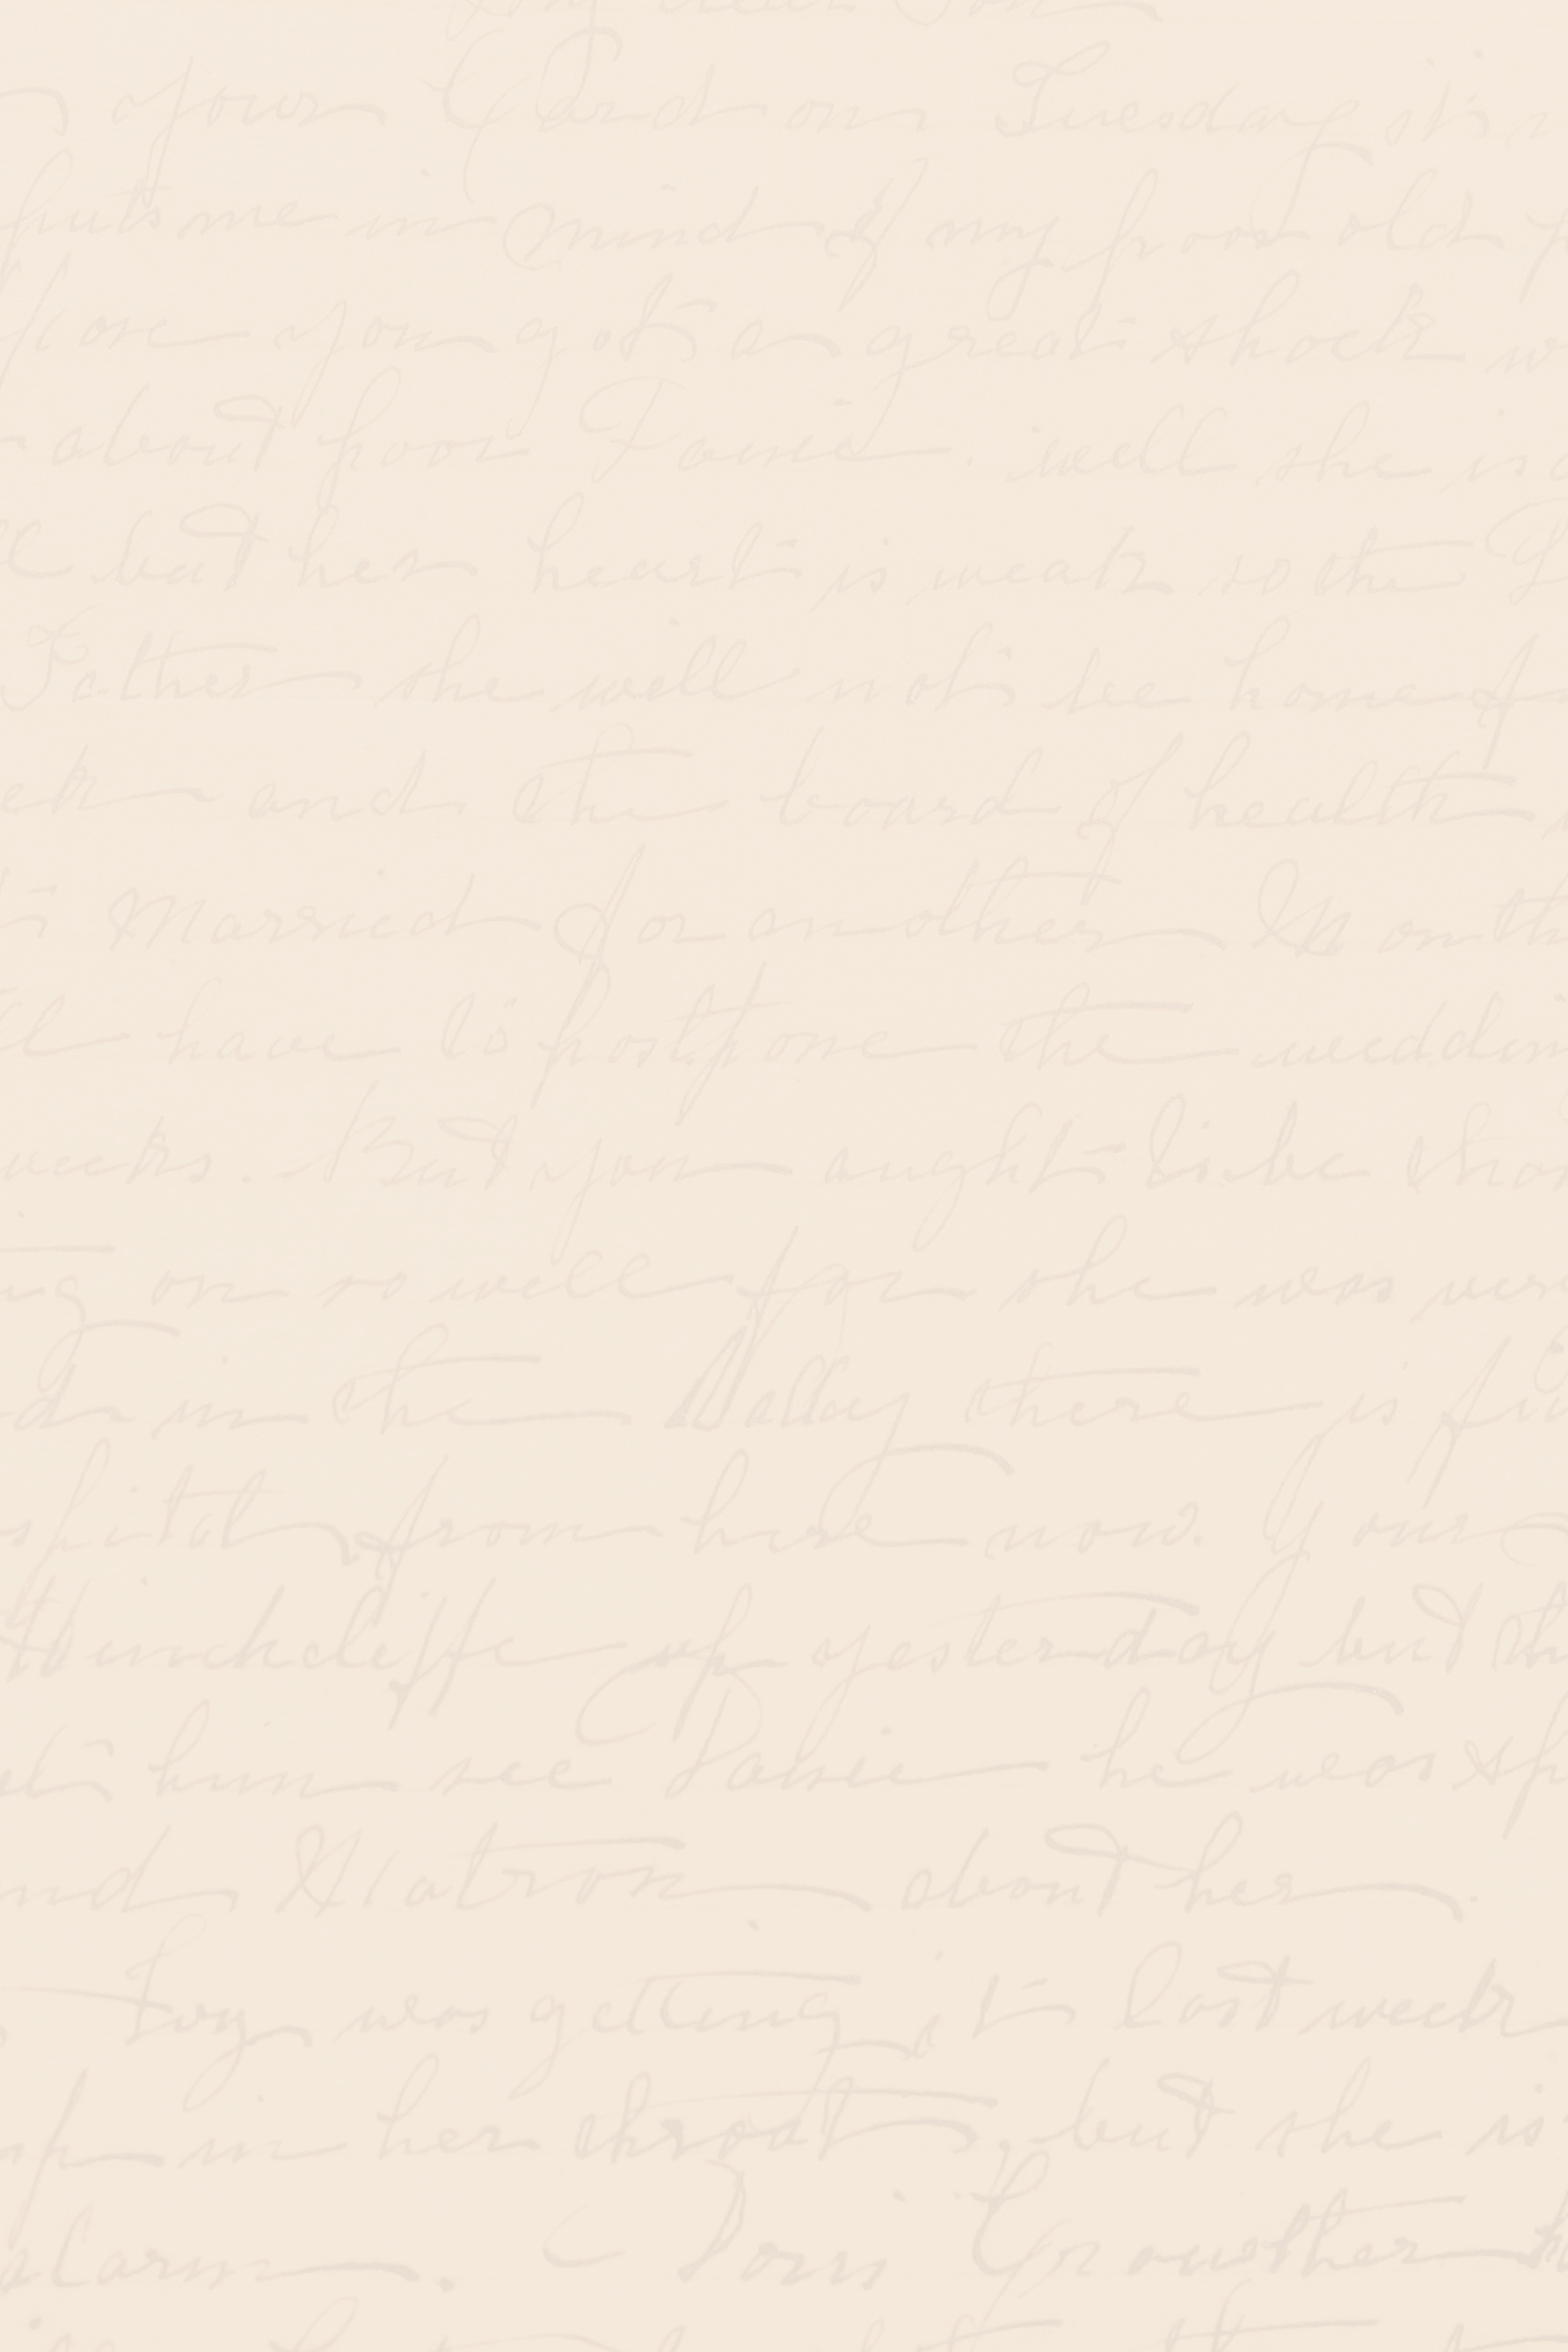 my dear Son
your Card on Tuesday it's
puts me in mind of my poor old
fore you got a great shock
about poor Janie. well she is
but her heart is weak so the
Father she will not be home for
ek and the board of health
married for another Month
have to postpone the weddin
weeks. But you aught to be than
ng on so well for she was ver
d in the Valley there is
spital from here now. Your
Hinchcliffe up yesterday but th
et him see Janie he was sp
nd Matron about her.
Ivy was getting it last week
up in her throat, but she is
alarm. Tom Crowther